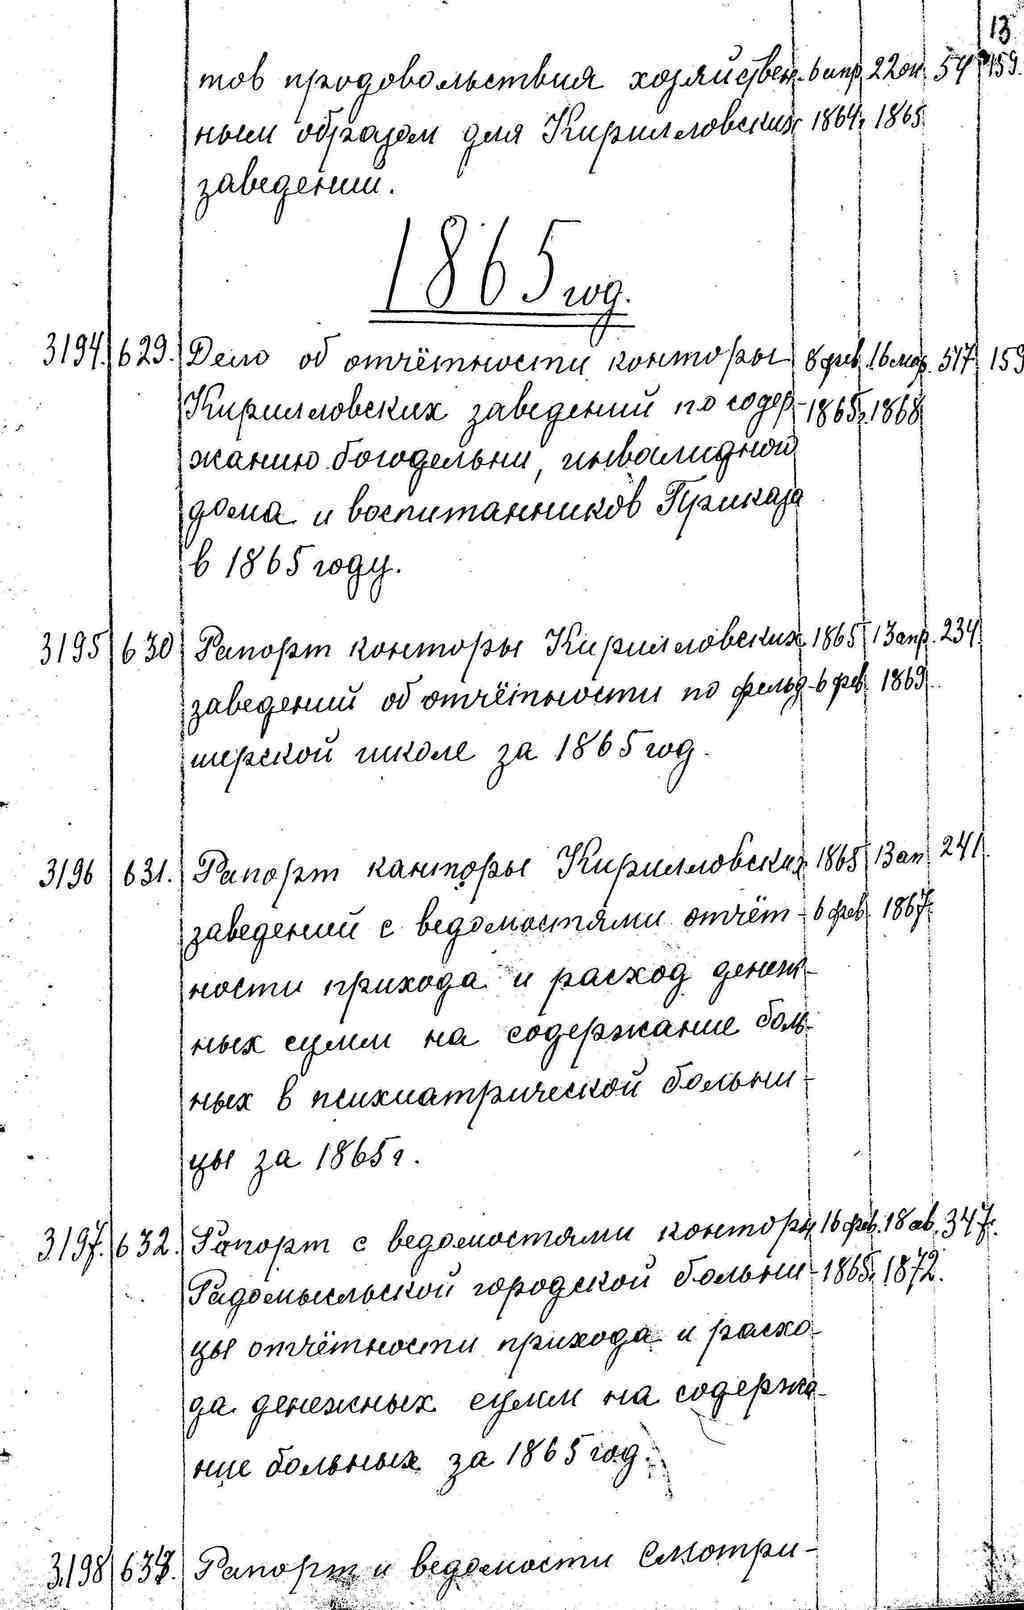 13
тов продовольствия хозяйствен- 6 апр. 22 ок. 54 159.
ным образом для Кирилловских 1864г. 1865
заведений.
1865 год.
3194. 629. Дело об отчётности конторы 8 фев. 16 мар. 517 159
Кирилловских заведений по содер- 1865г. 1868
жанию богодельни, инвалидного
дома и воспитанников Приказа
в 1865 году.
3195 630 Рапорт конторы Кирилловских 1865 13 апр. 234.
заведений об отчётности по фельд- 6 фев. 1869.
шерской школе за 1865 год.
3196 631. Рапорт канторы Кирилловских 1865 13 ап 241.
заведений с ведомостями отчёт- 6 фев. 1867.
ности прихода и расход денеж-
ных сумм на содержание боль-
ных в психиатрической больни-
цы за 1865 г.
3197. 632. Рапорт с ведомостями конторы 16 фев. 18 ав. 347.
Радомысльской городской больни- 1865г. 1872.
цы отчётности прихода и расхо-
да денежных сумм на содержа-
ние больных за 1865 год.
3198 633. Рапорт и ведомости Смотри-